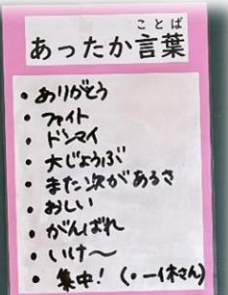 ことば
あったか言葉
・ありがとう
・ファイト
・ドンマイ
・大じょうぶ
・また次があるさ
・おしい
・がんばれ
・いけ～
・集中！（・一休さん）